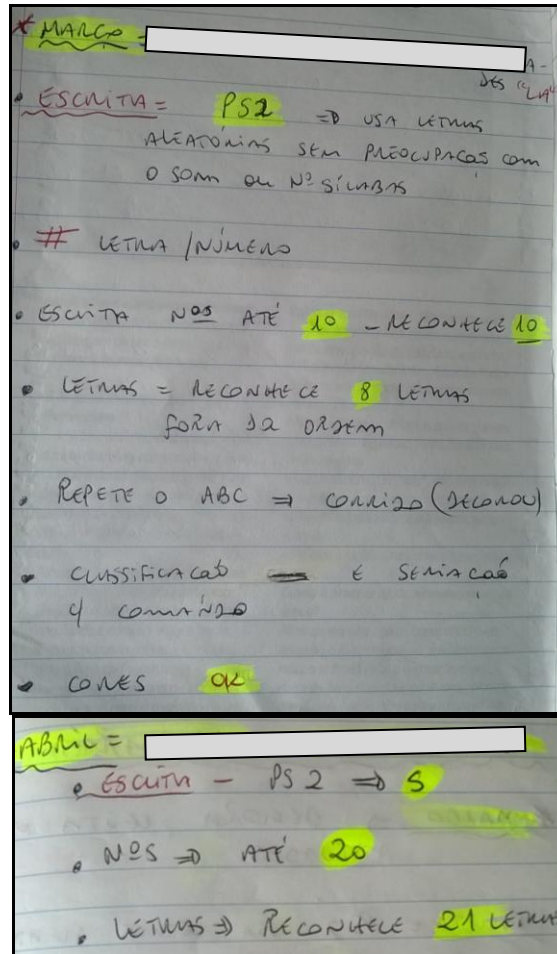 * MARÇO =
A-
DES "LIA"
• ESCRITA = PS2 => USA LETRAS
ALEATÓRIAS SEM PREOCUPAÇAS COM
O SOM OU Nº SÍLABAS
• # LETRA / NÚMERO
• ESCRITA Nos ATÉ 10 - RECONHECE 10
• LETRAS = RECONHECE 8 LETRAS
FORA DA ORDEM
• REPETE O ABC => CORRIDO (DECOROU)
• CLASSIFICAÇAÕ — E SERIAÇAÕ
C/ COMANDO
• CORES OK
ABRIL =
• ESCRITA - PS2 => S
• NOS => ATÉ 20
• LETRAS => RECONHECE 21 LETRA